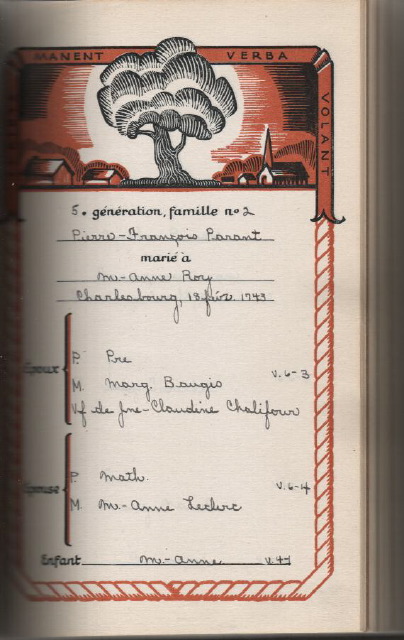 MANENT VERBA VOLANT
5. génération, famille nº 2
Pierre-François Parant
marié à
m-Anne Roy
Charlesbourg, 18 fév. 1743
Époux
P. Pre
M. Marg. Baugis
v. 6-3
Vf de Jne-Claudine Chalifour
Épouse
P. Math.
v. 6-4
M. m.-Anne Leclerc
Enfant m.-Anne v. 4-1